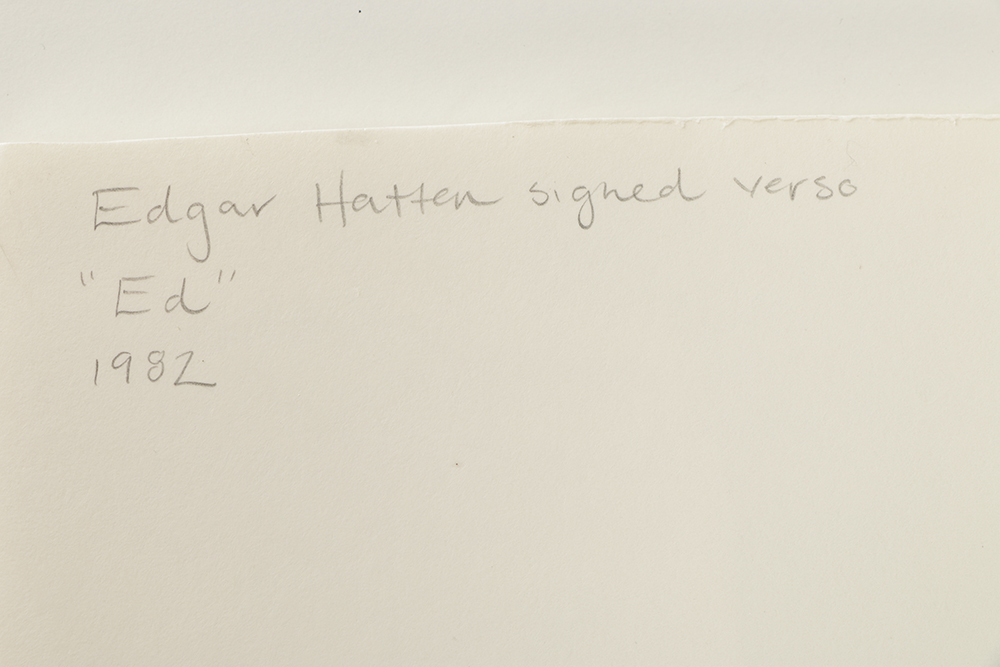 Edgar Hatten signed verso
"Ed"
1982